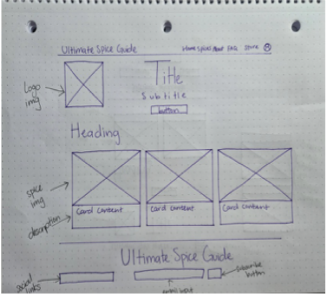 Ultimate Spice Guide Home Spices About FAQ Store
Title
Logo
img
Subtitle
button
Heading
spice
img
Card Content Card Content Card Content
description
Ultimate Spice Guide
social
links
subscribe
button
email input